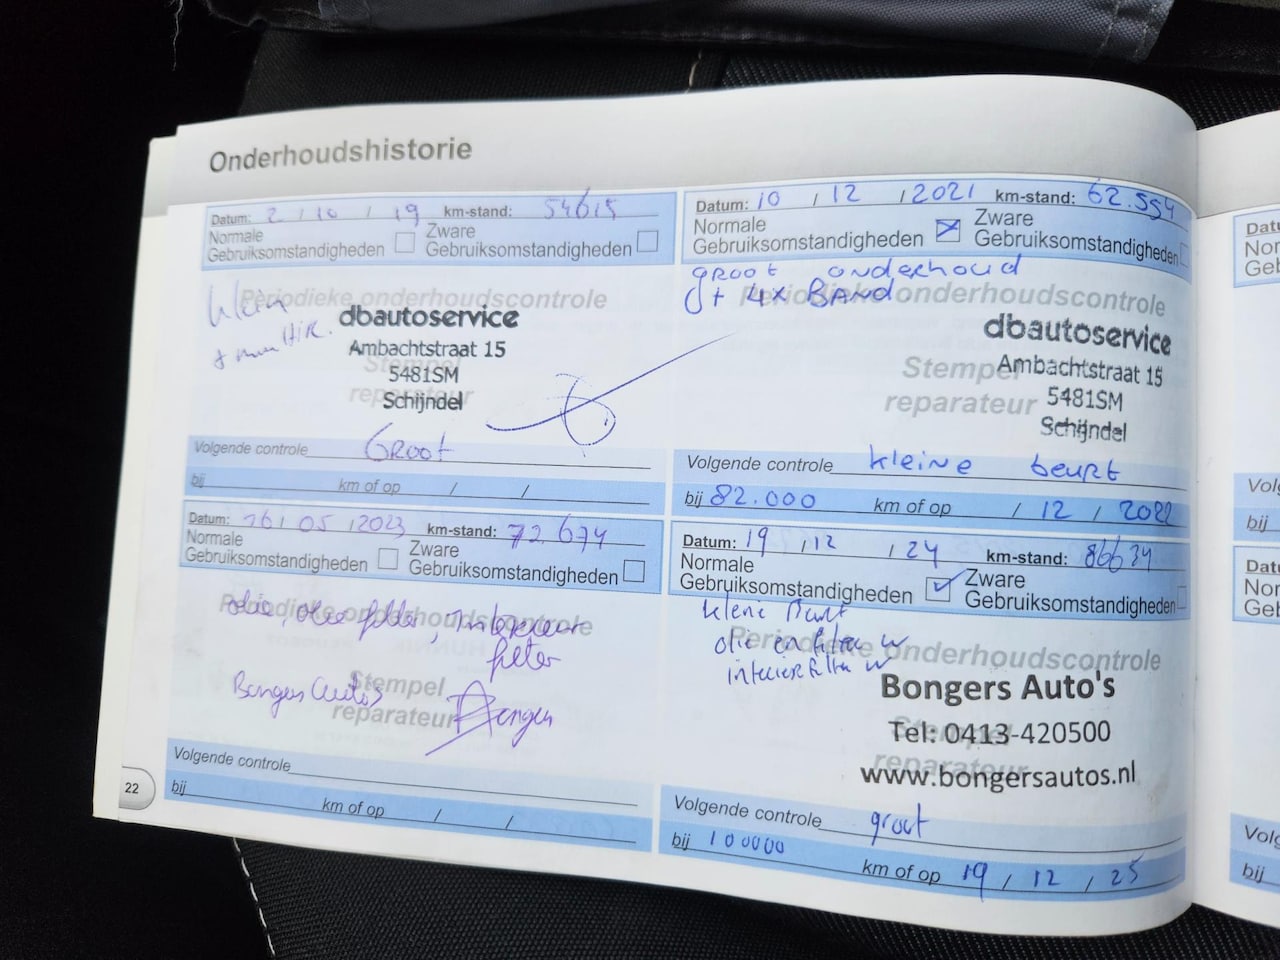 Onderhoudshistorie
Datum: 2 / 10 / 19 km-stand: 54615
Normale Gebruiksomstandigheden Zware Gebruiksomstandigheden
Klein
Periodieke onderhoudscontrole
dbautoservice
Ambachtstraat 15
5481SM
Schijndel
Stempel
reparateur
Volgende controle Groot
bij km of op / /
Datum: 10 / 12 / 2021 km-stand: 62.554
Normale Gebruiksomstandigheden Zware Gebruiksomstandigheden
groot onderhoud
+ 4x BAND
Periodieke onderhoudscontrole
dbautoservice
Ambachtstraat 15
5481SM
Schijndel
Stempel
reparateur
Volgende controle kleine beurt
bij 82.000 km of op / 12 / 2022
Datum: 16 / 05 / 2023 km-stand: 72.674
Normale Gebruiksomstandigheden Zware Gebruiksomstandigheden
olie, olie filter, Interieur
filter
Periodieke onderhoudscontrole
Bongers Autos
Stempel
reparateur
Volgende controle
bij km of op / /
22
Datum: 19 / 12 / 24 km-stand: 86634
Normale Gebruiksomstandigheden Zware Gebruiksomstandigheden
olie en filter
Periodieke onderhoudscontrole
Bongers Auto's
Tel: 0413-420500
www.bongersautos.nl
Stempel
reparateur
Volgende controle groot
bij 100000 km of op 19 / 12 / 25